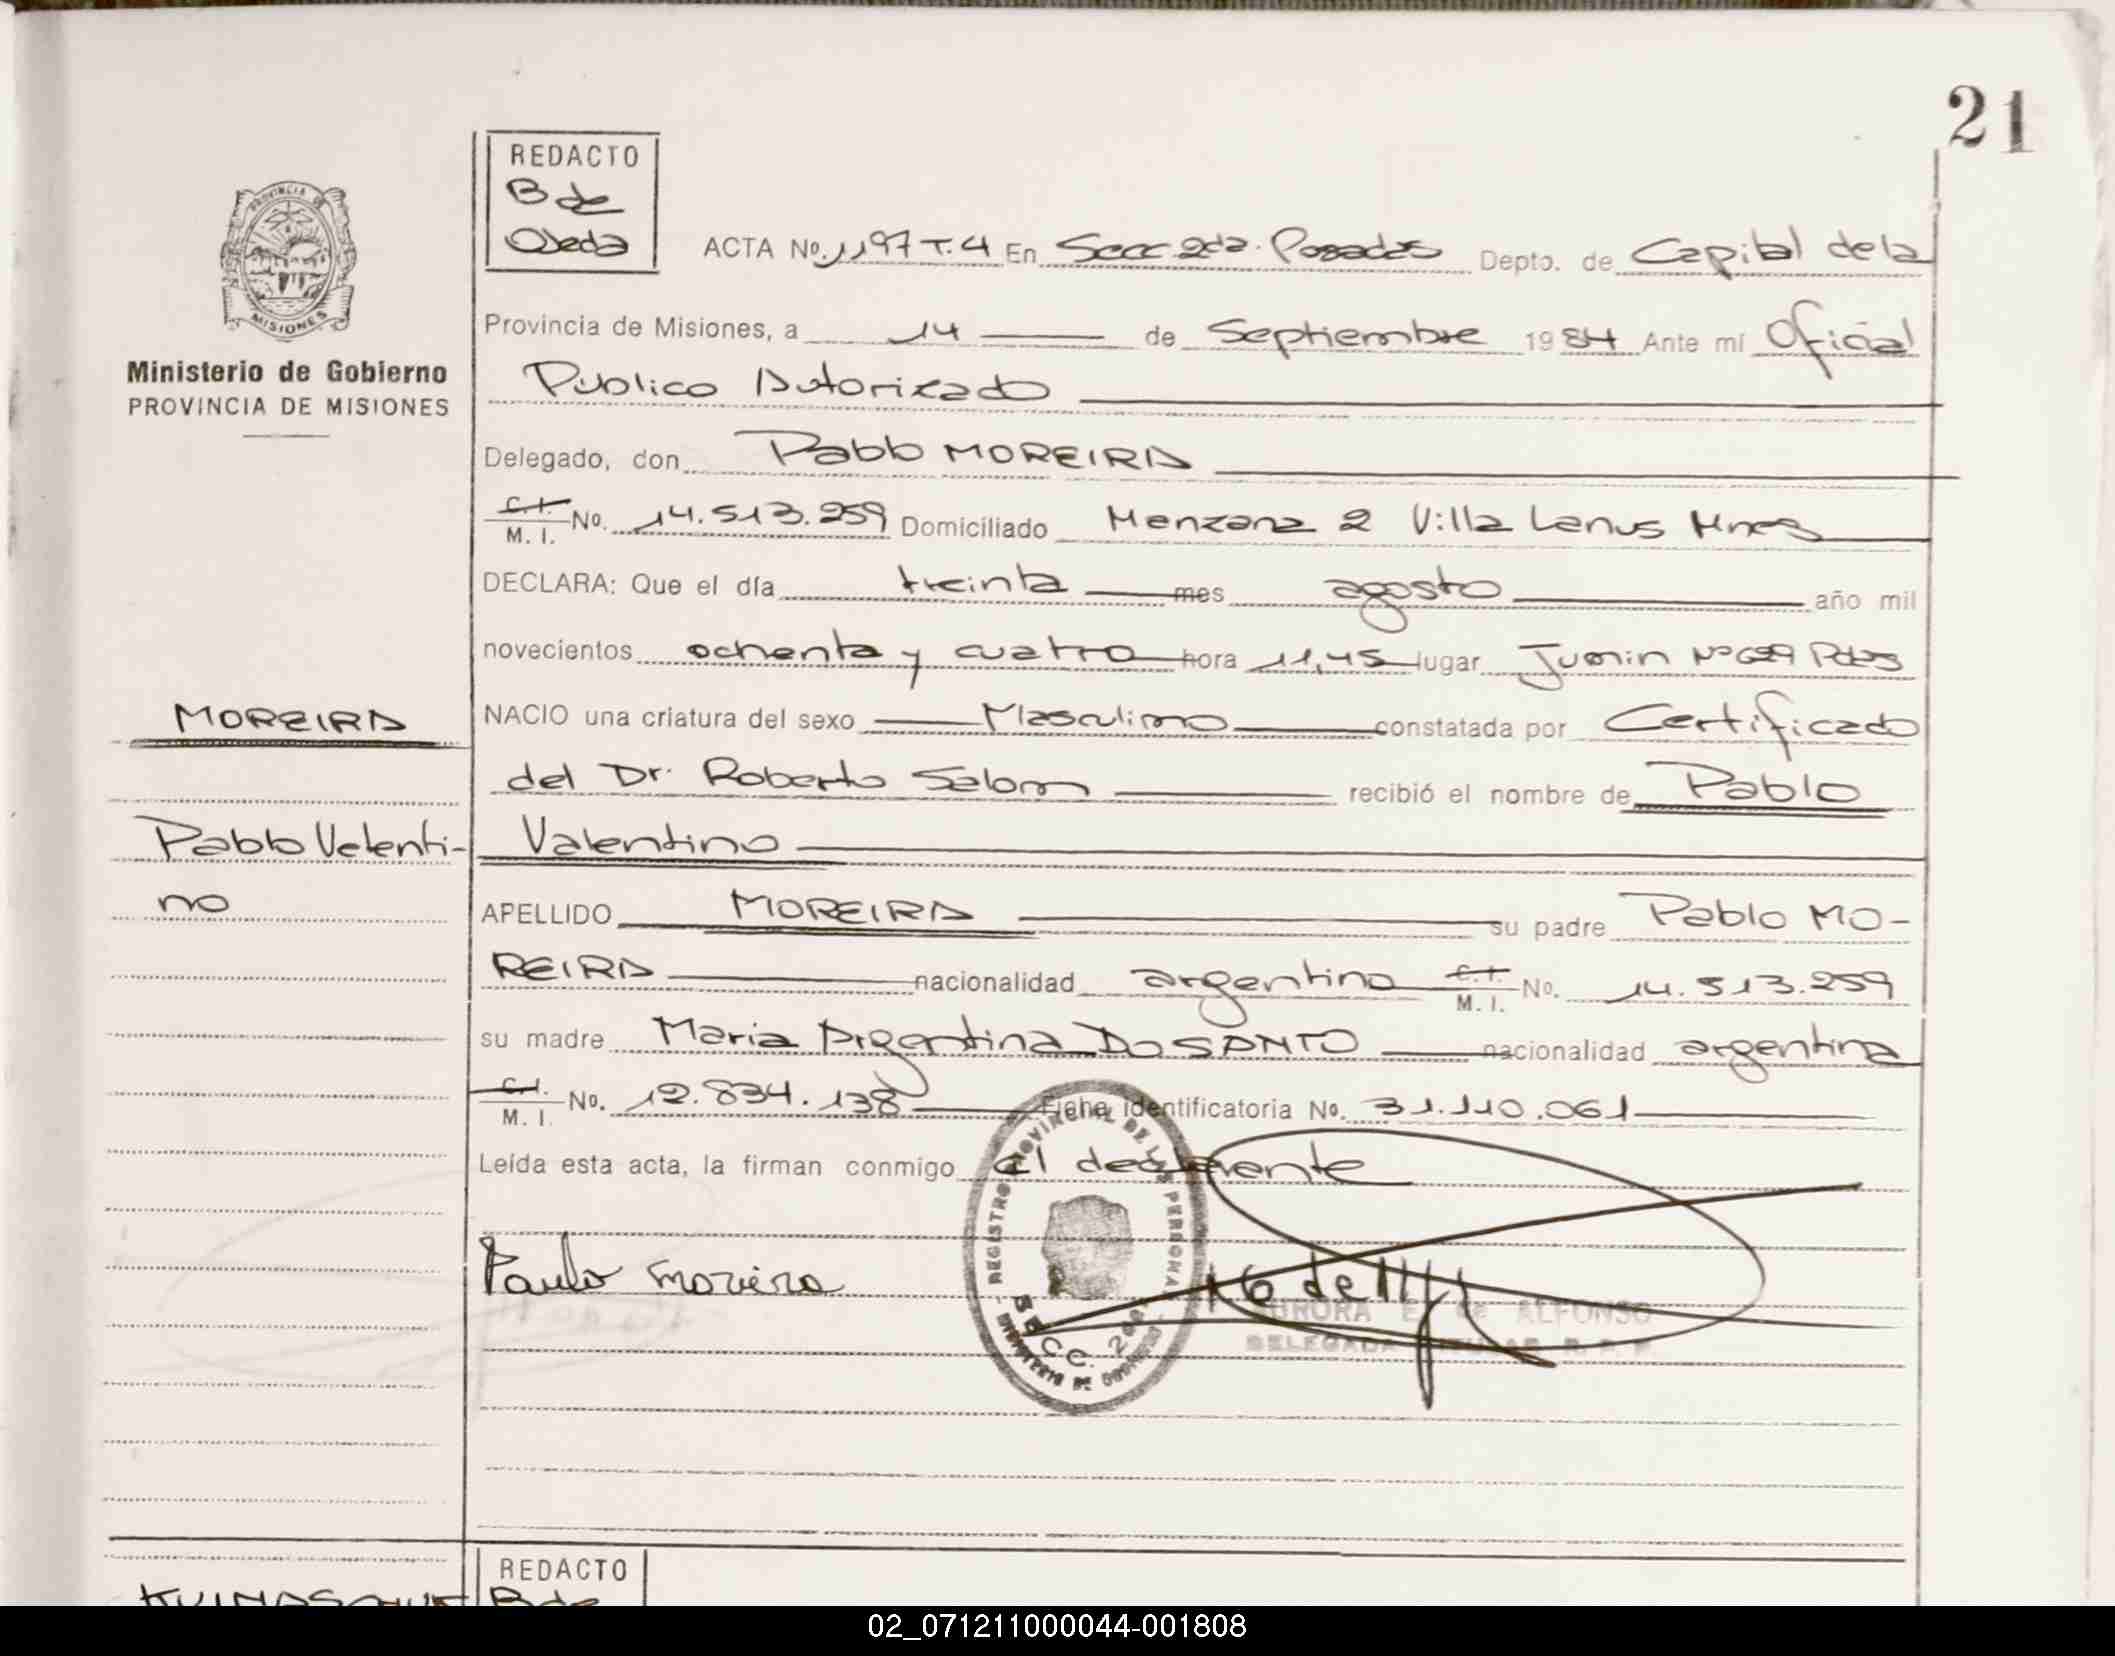 21
REDACTO
B de
Ojeda
PROVINCIA DE
MISIONES
Ministerio de Gobierno
PROVINCIA DE MISIONES
ACTA No. 1197 T.4 En Secc 2da. Posadas Depto. de Capital de la
Provincia de Misiones, a 14 de Septiembre 1984 Ante mí Oficial
Público Autorizado
Delegado, don Pablo MOREIRA
C.I.
M. I. No. 14.513.259 Domiciliado Manzana 2 Villa Lanus Mnes
DECLARA: Que el día treinta mes agosto año mil
novecientos ochenta y cuatro hora 11,45 lugar Junin Nº 629 Pdas
NACIO una criatura del sexo Masculino constatada por Certificado
del Dr. Roberto Salom recibió el nombre de Pablo
Valentino
MOREIRA
Pablo Valenti-
no
APELLIDO MOREIRA su padre Pablo MO-
REIRA nacionalidad argentino C.I.
M. I. No. 14.513.259
su madre Maria Argentina DO SANTO nacionalidad argentina
C.I.
M. I. No. 12.834.138 Ficha identificatoria No. 31.110.061
Leída esta acta, la firman conmigo el declarante
Paulo Moreira
REGISTRO PROVINCIAL DE LAS PERSONAS
SECC. 2da.
AURORA E. de ALFONSO
DELEGADA TITULAR R. P. P.
REDACTO
B de
02_071211000044-001808